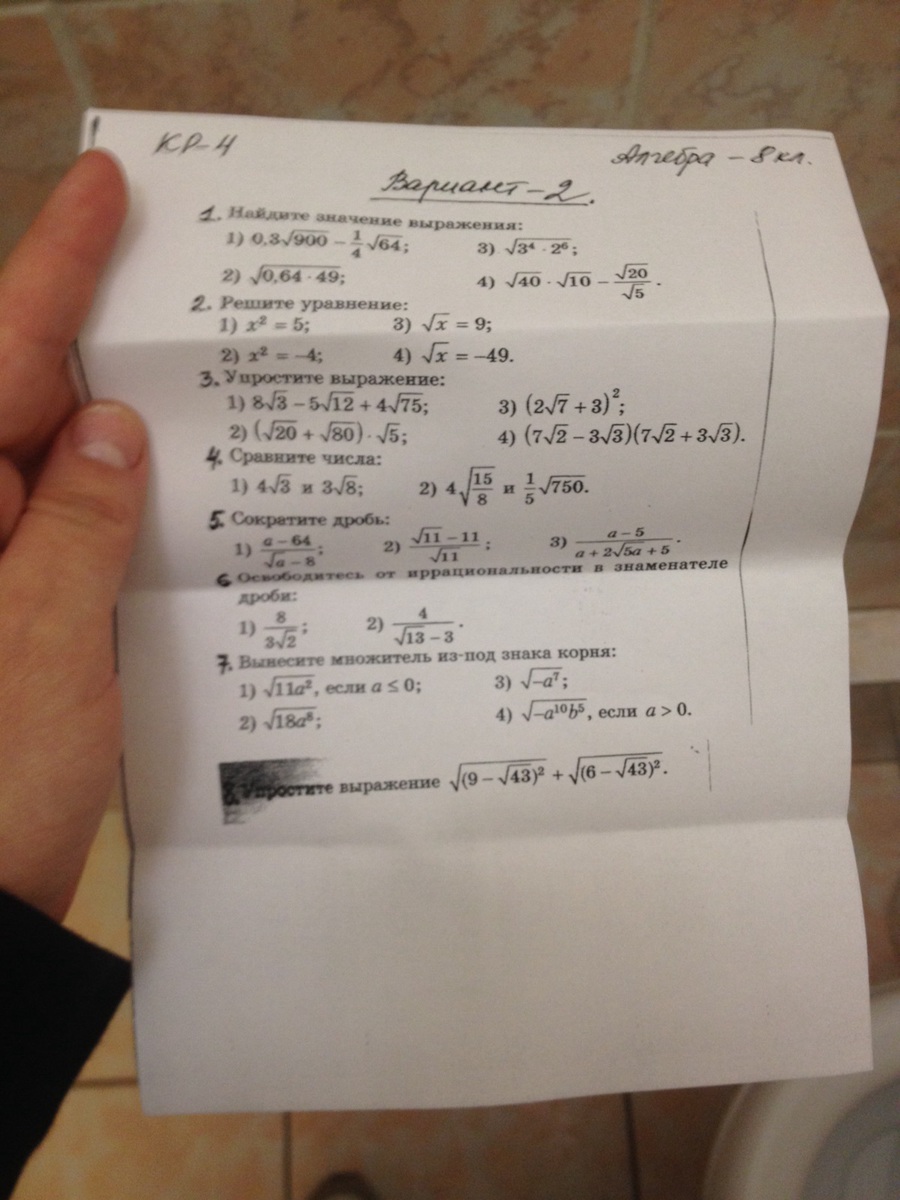 КР-4 Алгебра - 8 кл.
Вариант-2.
1. Найдите значение выражения:
1) 0,3√900 − 1/4 √64; 3) √(3⁴ · 2⁶);
2) √(0,64 · 49); 4) √40 · √10 − √20/√5.
2. Решите уравнение:
1) x² = 5; 3) √x = 9;
2) x² = −4; 4) √x = −49.
3. Упростите выражение:
1) 8√3 − 5√12 + 4√75; 3) (2√7 + 3)²;
2) (√20 + √80) · √5; 4) (7√2 − 3√3)(7√2 + 3√3).
4. Сравните числа:
1) 4√3 и 3√8; 2) 4√(15/8) и 1/5 √750.
5. Сократите дробь:
1) (a − 64)/(√a − 8); 2) (√11 − 11)/√11; 3) (a − 5)/(a + 2√(5a) + 5).
6 Освободитесь от иррациональности в знаменателе
дроби:
1) 8/(3√2); 2) 4/(√13 − 3).
7. Вынесите множитель из-под знака корня:
1) √(11a²), если a ≤ 0; 3) √(−a⁷);
2) √(18a⁸); 4) √(−a¹⁰b⁵), если a > 0.
8. Упростите выражение √((9 − √43)²) + √((6 − √43)²).